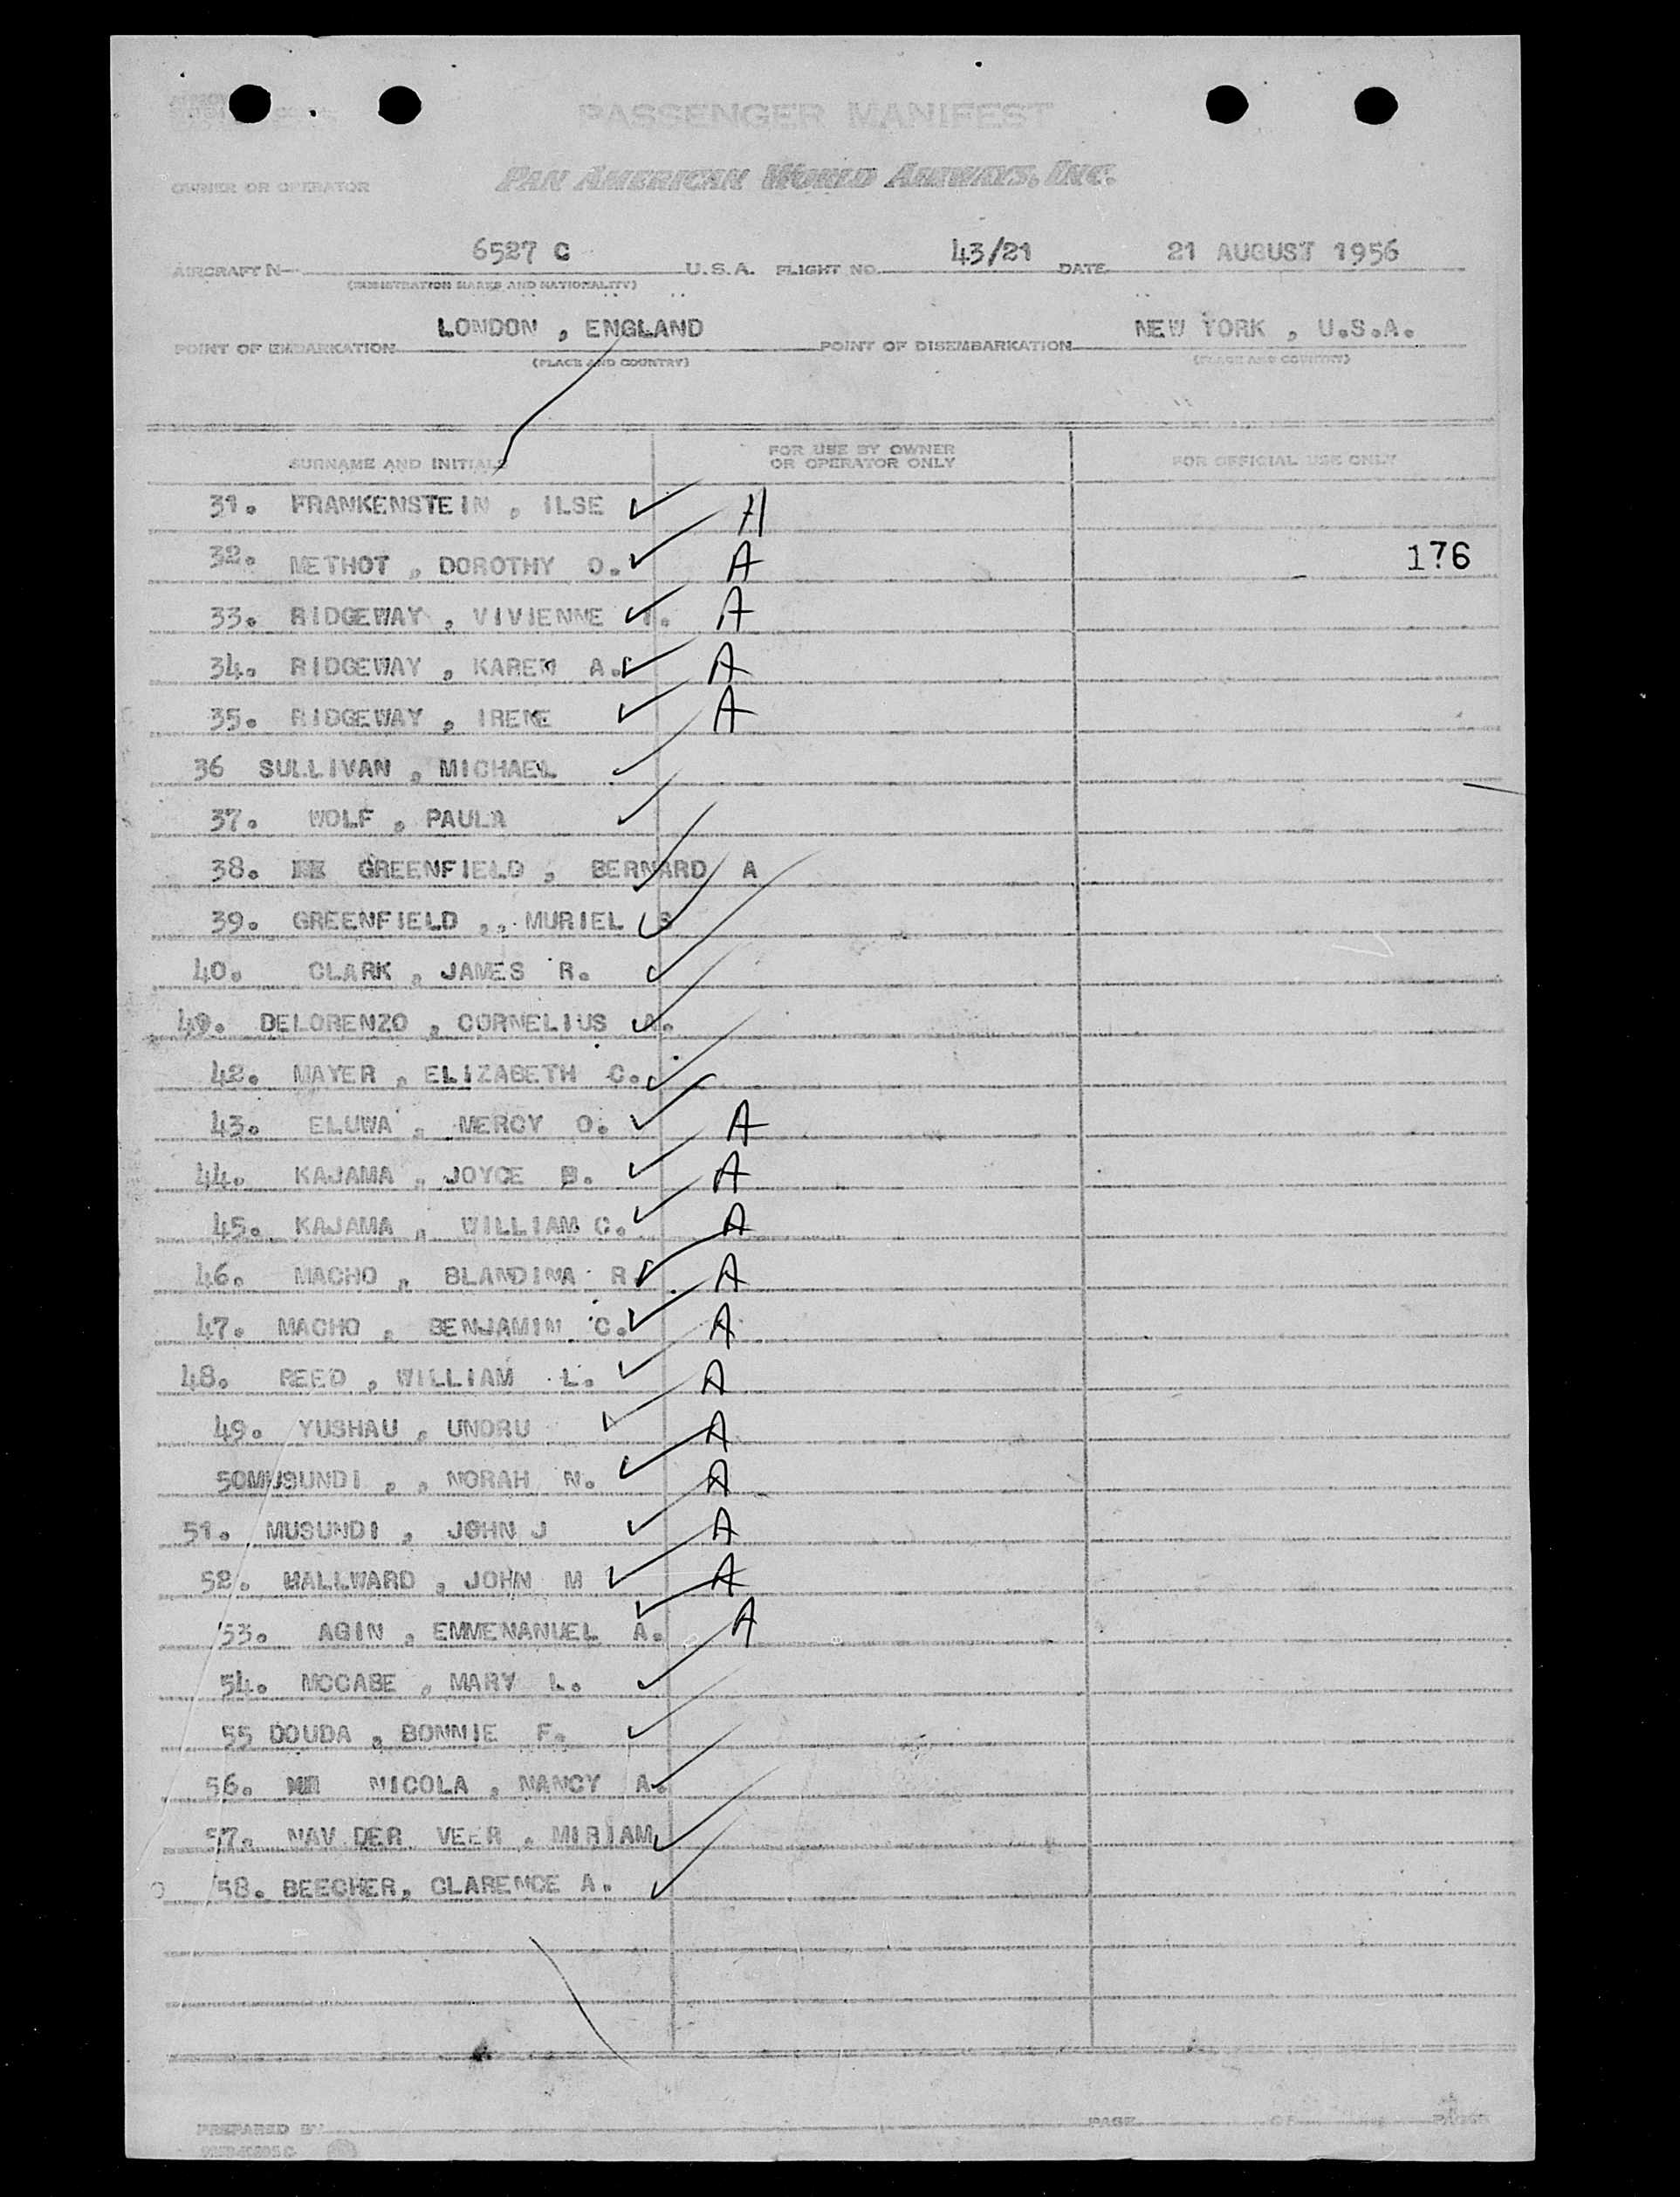 PASSENGER MANIFEST
OWNER OR OPERATOR PAN AMERICAN WORLD AIRWAYS, INC.
AIRCRAFT N 6527 C U.S.A. FLIGHT NO. 43/21 DATE 21 AUGUST 1956
(REGISTRATION MARKS AND NATIONALITY)
POINT OF EMBARKATION LONDON , ENGLAND POINT OF DISEMBARKATION NEW YORK , U.S.A.
(PLACE AND COUNTRY) (PLACE AND COUNTRY)
SURNAME AND INITIALS FOR USE BY OWNER OR OPERATOR ONLY FOR OFFICIAL USE ONLY
31. FRANKENSTEIN , ILSE ✓
32. METHOT , DOROTHY O. ✓ A 176
33. RIDGEWAY , VIVIENNE ✓ A
34. RIDGEWAY , KAREN A. ✓ A
35. RIDGEWAY , IRENE ✓ A
36 SULLIVAN , MICHAEL ✓
37. WOLF , PAULA ✓
38. GREENFIELD , BERNARD A ✓
39. GREENFIELD , , MURIEL S ✓
40. CLARK , JAMES R. ✓
DELORENZO , CORNELIUS A. ✓
42. MAYER , ELIZABETH C. ✓
43. ELUWA , MERCY O. ✓ A
44. KAJAMA , JOYCE B. ✓ A
45. KAJAMA , WILLIAM C. ✓ A
46. MACHO , BLANDINA R ✓ A
47. MACHO , BENJAMIN C. ✓ A
48. REED , WILLIAM L. ✓ A
49. YUSHAU , UNORU ✓ A
50MUSUNDI , , NORAH N. ✓ A
51. MUSUNDI , JOHN J ✓ A
52. HALLWARD , JOHN M ✓ A
53. AGIN , EMMENANUEL A. ✓ A
54. MCCABE , MARY L. ✓
55 DOUDA , BONNIE F. ✓
56. NICOLA , NANCY A. ✓
57. NAV DER VEER , MIRIAM ✓
58. BEECHER, CLARENCE A. ✓
PREPARED BY PAGE OF PAGES